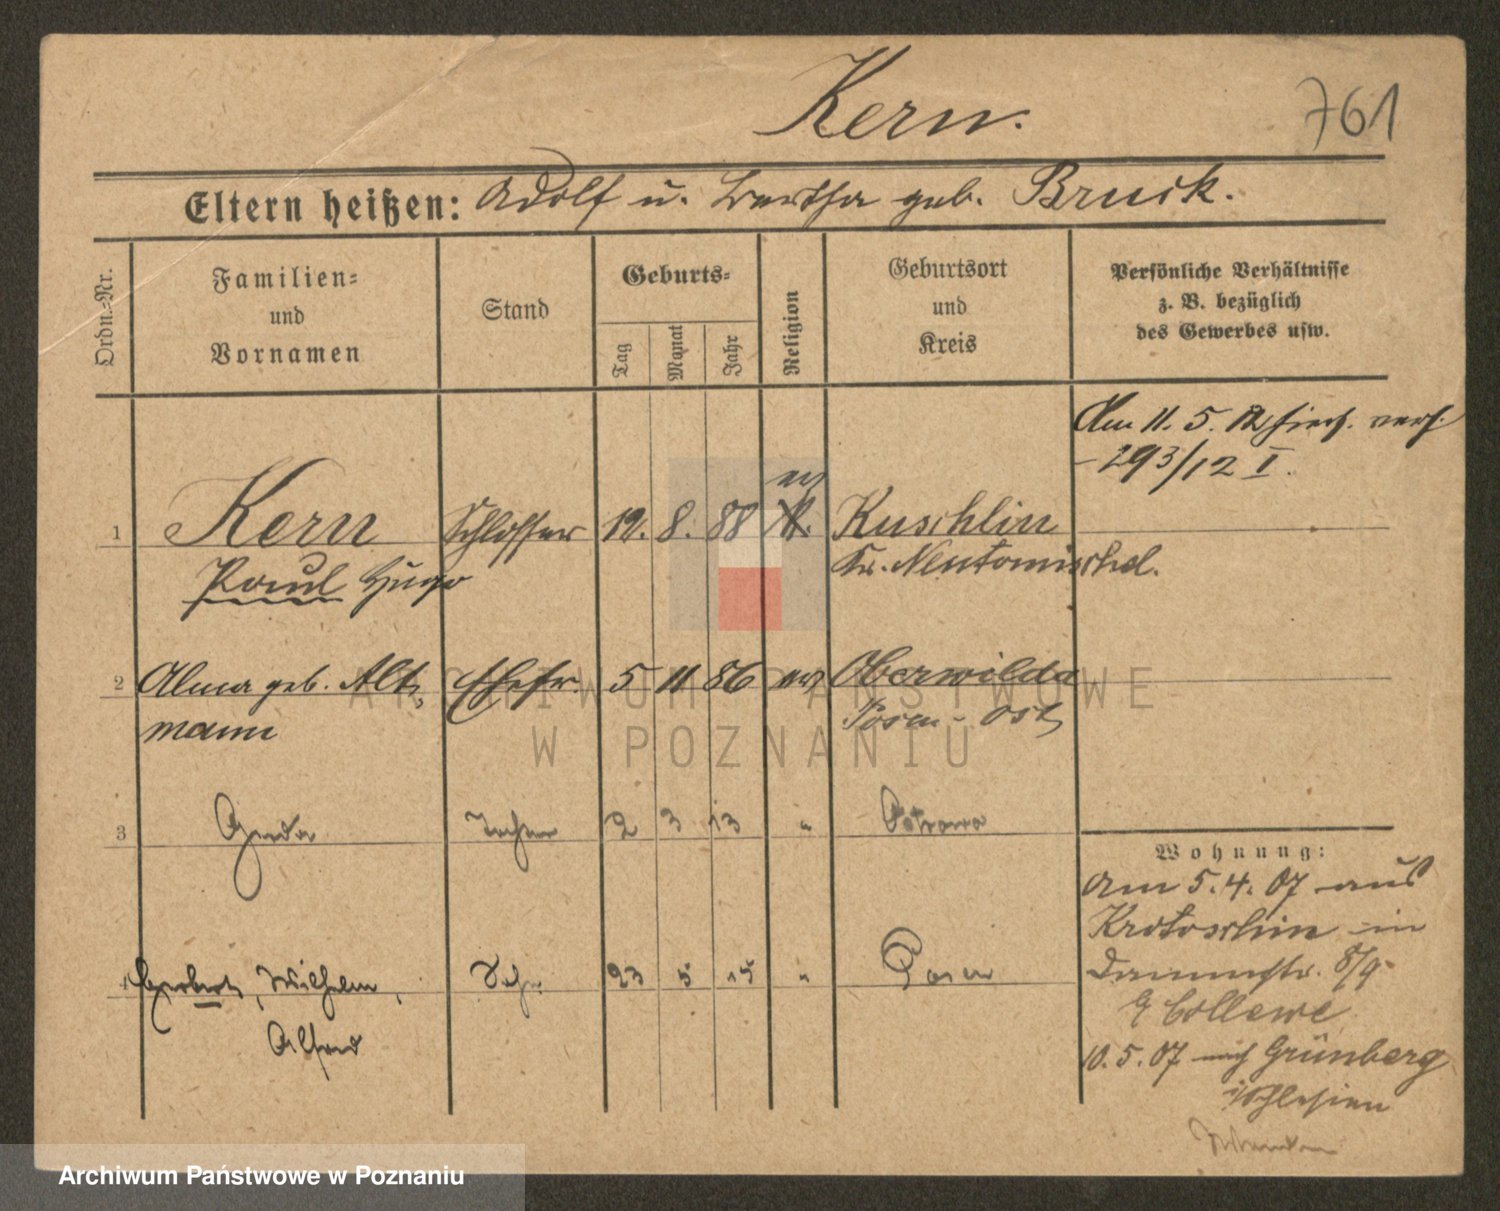 Kern.
761
Eltern heißen: Adolf u. Bertha geb. Bruck.
Ordn.-Nr.
Familien-
und
Vornamen
Stand
Geburts-
Tag
Monat
Jahr
Religion
Geburtsort
und
Kreis
Persönliche Verhältnisse
z. B. bezüglich
des Gewerbes usw.
Am 11. 5. 12 hier
293/12 I.
1 Kern Schlosser 12. 8. 88 ev Kuschlin
Paul Hugo Kr. Neutomischel.
2 Alma geb. Alt- Ehefr. 5 11 86 ev Oberwilda
mann Posen-Ost
3 Gerda Tochter 2 3 13 " Ostrowo
Wohnung:
Am 5. 4. 07 aus
Krotoschin in
Dammstr. 8/9
b Collewe
10. 5. 07 nach Grünberg
i/Schlesien
4 Herbert, Wilhelm, Sohn 23 5 15 " Posen
Alfred
ARCHIWUM PAŃSTWOWE
W POZNANIU
Archiwum Państwowe w Poznaniu